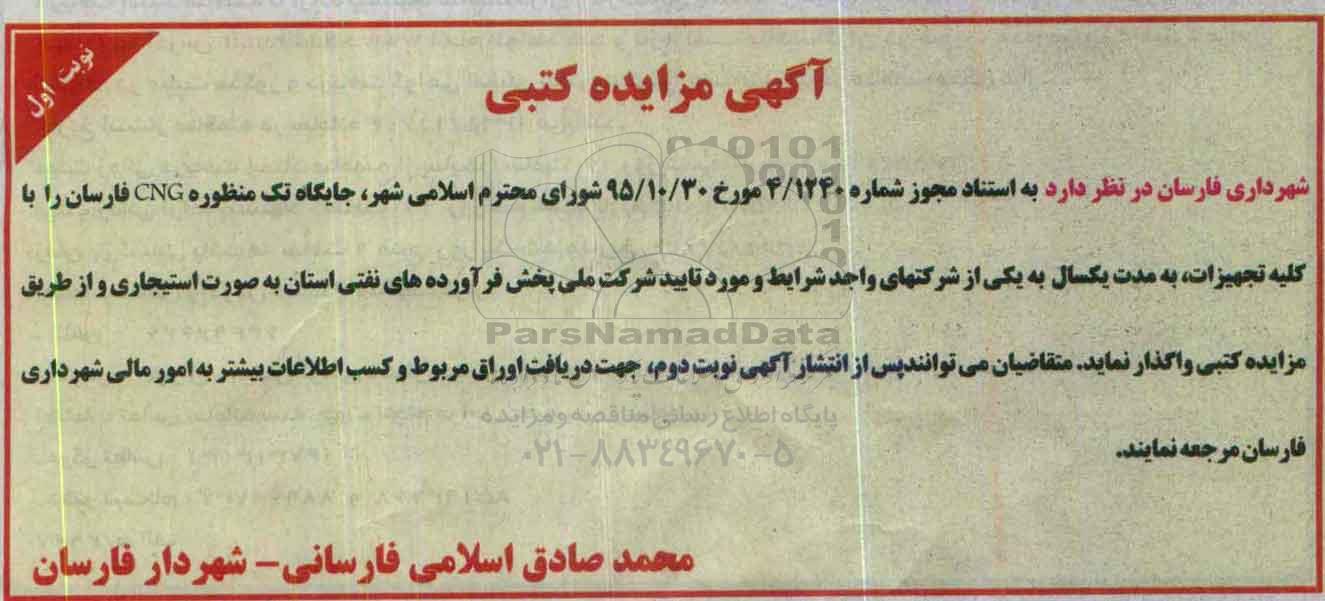 نوبت اول
آگهی مزایده کتبی
شهرداری فارسان در نظر دارد به استناد مجوز شماره ۴/۱۲۴۰ مورخ ۹۵/۱۰/۳۰ شورای محترم اسلامی شهر، جایگاه تک منظوره CNG فارسان را با
کلیه تجهیزات، به مدت یکسال به یکی از شرکتهای واجد شرایط و مورد تایید شرکت ملی پخش فرآورده های نفتی استان به صورت استیجاری و از طریق
مزایده کتبی واگذار نماید. متقاضیان می توانندپس از انتشار آگهی نوبت دوم، جهت دریافت اوراق مربوط و کسب اطلاعات بیشتر به امور مالی شهرداری
فارسان مرجعه نمایند.
محمد صادق اسلامی فارسانی - شهردار فارسان
ParsNamadData
پایگاه اطلاع رسانی مناقصه و مزایده
۰۲۱-۸۸۳۴۹۶۷۰-۵